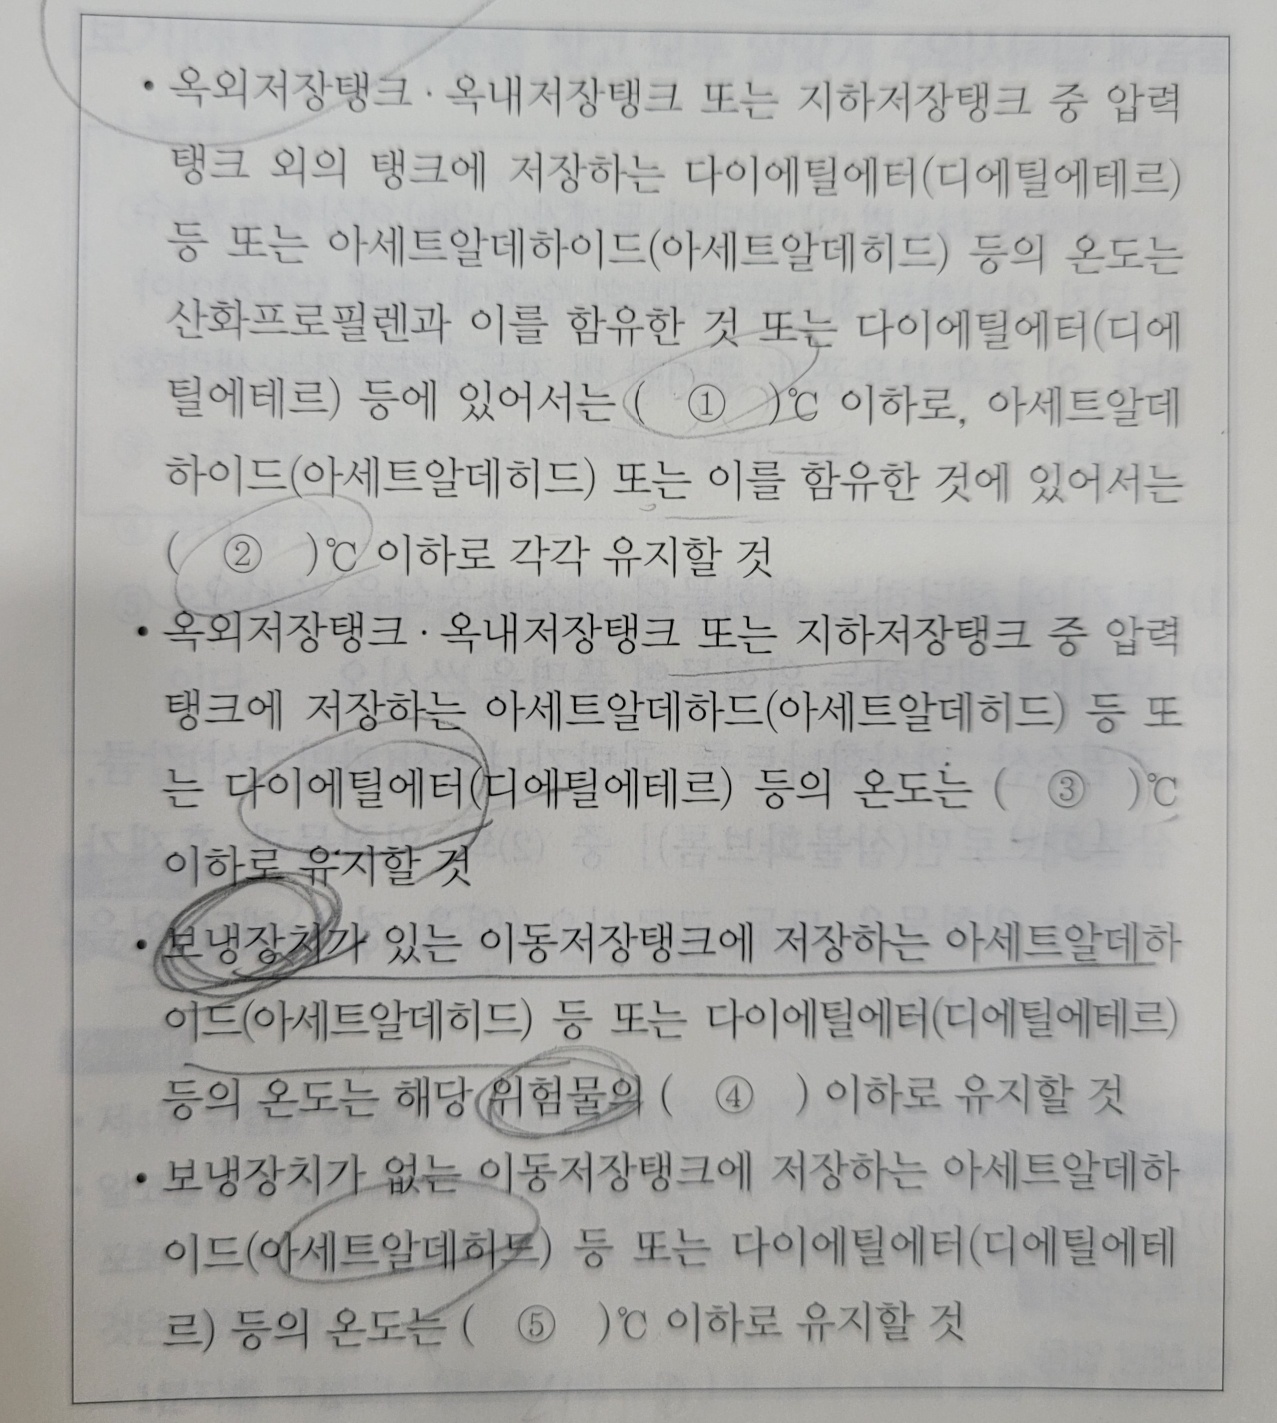 • 옥외저장탱크 · 옥내저장탱크 또는 지하저장탱크 중 압력
탱크 외의 탱크에 저장하는 다이에틸에터(디에틸에테르)
등 또는 아세트알데하이드(아세트알데히드) 등의 온도는
산화프로필렌과 이를 함유한 것 또는 다이에틸에터(디에
틸에테르) 등에 있어서는 ( ① )℃ 이하로, 아세트알데
하이드(아세트알데히드) 또는 이를 함유한 것에 있어서는
( ② )℃ 이하로 각각 유지할 것
• 옥외저장탱크 · 옥내저장탱크 또는 지하저장탱크 중 압력
탱크에 저장하는 아세트알데하드(아세트알데히드) 등 또
는 다이에틸에터(디에틸에테르) 등의 온도는 ( ③ )℃
이하로 유지할 것
• 보냉장치가 있는 이동저장탱크에 저장하는 아세트알데하
이드(아세트알데히드) 등 또는 다이에틸에터(디에틸에테르)
등의 온도는 해당 위험물의 ( ④ ) 이하로 유지할 것
• 보냉장치가 없는 이동저장탱크에 저장하는 아세트알데하
이드(아세트알데히드) 등 또는 다이에틸에터(디에틸에테
르) 등의 온도는 ( ⑤ )℃ 이하로 유지할 것